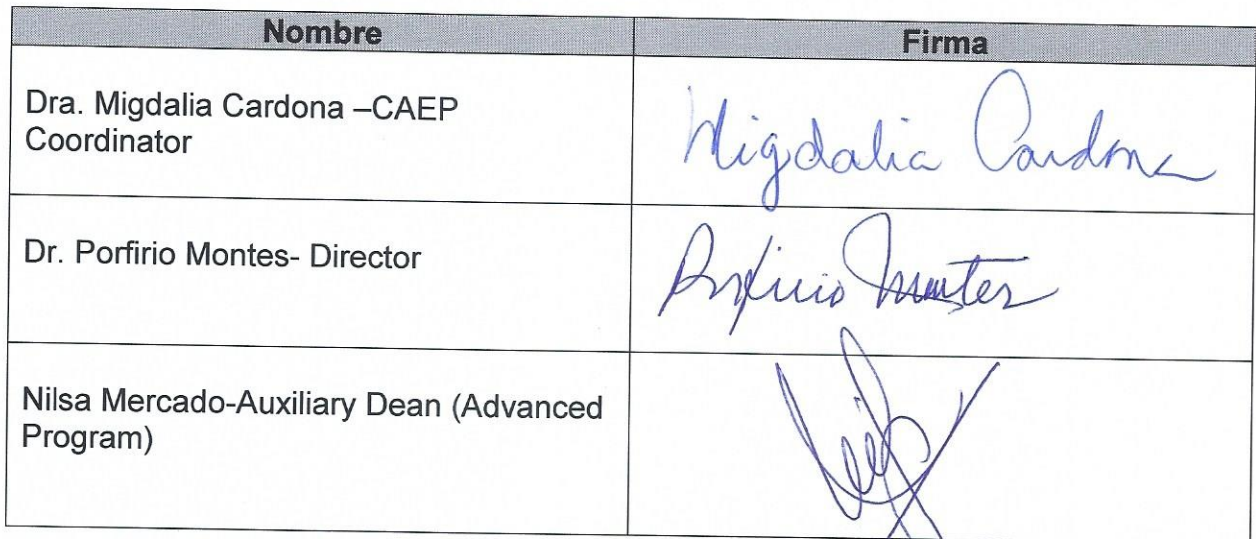 Nombre Firma
Dra. Migdalia Cardona –CAEP
Coordinator
Migdalia Cardona
Dr. Porfirio Montes- Director
Porfirio Montes
Nilsa Mercado-Auxiliary Dean (Advanced
Program)